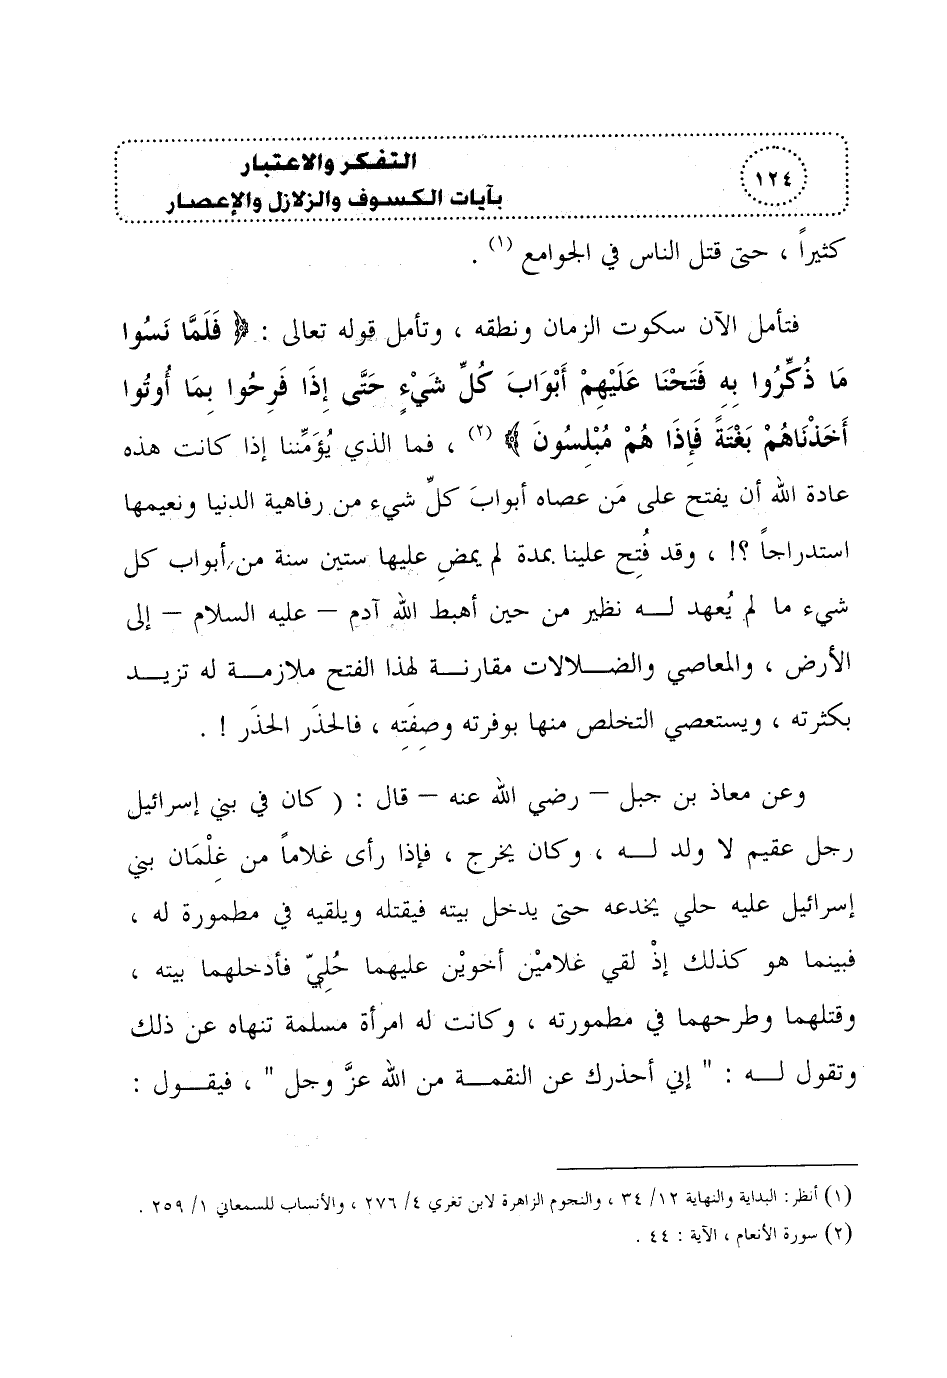 التفكر والاعتبار
١٢٤
بآيات الكسوف والزلازل والإعصار
كثيراً ، حتى قتل الناس في الجوامع (١) .
فتأمل الآن سكوت الزمان ونطقه ، وتأمل قوله تعالى : ﴿ فَلَمَّا نَسُوا
مَا ذُكِّرُوا بِهِ فَتَحْنَا عَلَيْهِمْ أَبْوَابَ كُلِّ شَيْءٍ حَتَّى إِذَا فَرِحُوا بِمَا أُوتُوا
أَخَذْنَاهُمْ بَغْتَةً فَإِذَا هُمْ مُبْلِسُونَ ﴾ (٢) ، فما الذي يُؤَمِّننا إذا كانت هذه
عادة الله أن يفتح على مَن عصاه أبوابَ كلِّ شيء من رفاهية الدنيا ونعيمها
استدراجاً ؟! ، وقد فُتِح علينا بمدة لم يمضِ عليها ستين سنة من أبواب كل
شيء ما لم يُعهد لـه نظير من حين أهبط الله آدم – عليه السلام – إلى
الأرض ، والمعاصي والضـلالات مقارنـة لهذا الفتح ملازمـة له تزيـد
بكثرته ، ويستعصي التخلص منها بوفرته وصِفَتِه ، فالحذَر الحذَر ! .
وعن معاذ بن جبل – رضي الله عنه – قال : ( كان في بني إسرائيل
رجل عقيم لا ولد لـه ، وكان يخرج ، فإذا رأى غلاماً من غِلْمَان بني
إسرائيل عليه حلي يخدعه حتى يدخل بيته فيقتله ويلقيه في مطمورة له ،
فبينما هو كذلك إذْ لقي غلاميْن أخويْن عليهما حُلِيّ فأدخلهما بيته ،
وقتلهما وطرحهما في مطمورته ، وكانت له امرأة مسلمة تنهاه عن ذلك
وتقول لـه : " إني أحذرك عن النقمـة من الله عزَّ وجل " ، فيقـول :
(١) أنظر: البداية والنهاية ١٢/ ٣٤ ، والنجوم الزاهرة لابن تغري ٤/ ٢٧٦ ، والأنساب للسمعاني ١/ ٢٥٩ .
(٢) سورة الأنعام ، الآية : ٤٤ .